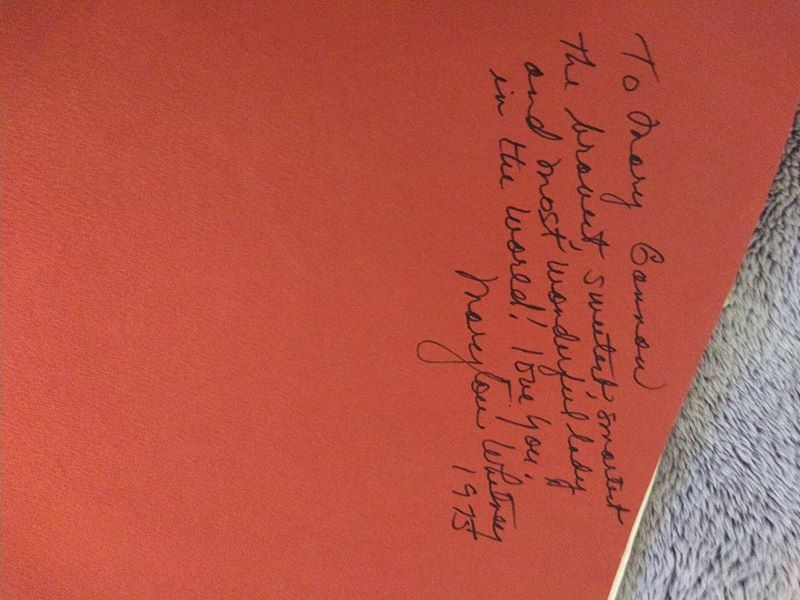 To Mary Cannon
the bravest, sweetest, smartest
and most wonderful lady
in the world! love you,
Marylou Whitney
1975